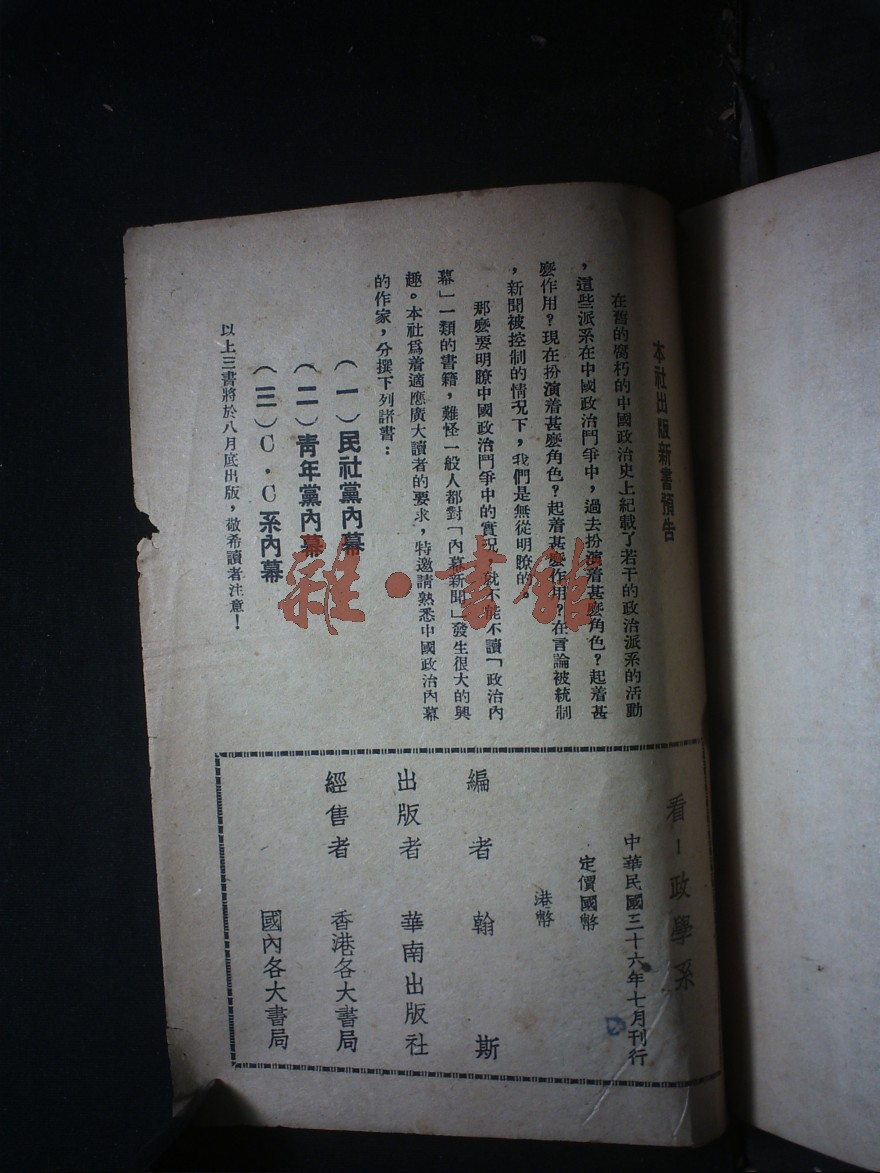 本社出版新書預告
在舊的腐朽的中國政治史上紀載了若干的政治派系的活動
，這些派系在中國政治鬥爭中，過去扮演着甚麼角色？起着甚
麼作用？現在扮演着甚麼角色？起着甚麼作用？在言論被統制
，新聞被控制的情况下，我們是無從明瞭的。
那麼要明瞭中國政治鬥爭中的實况，就不能不讀「政治內
幕」一類的書籍，難怪一般人都對「內幕新聞」發生很大的興
趣。本社爲着適應廣大讀者的要求，特邀請熟悉中國政治內幕
的作家，分撰下列諸書：
（一）民社黨內幕
（二）靑年黨內幕
（三）C·C系內幕
以上三書將於八月底出版，敬希讀者注意！
看！政學系
中華民國三十六年七月刊行
定價國幣
港幣
編者 翰斯
出版者 華南出版社
經售者 香港各大書局
國內各大書局
雜·書館